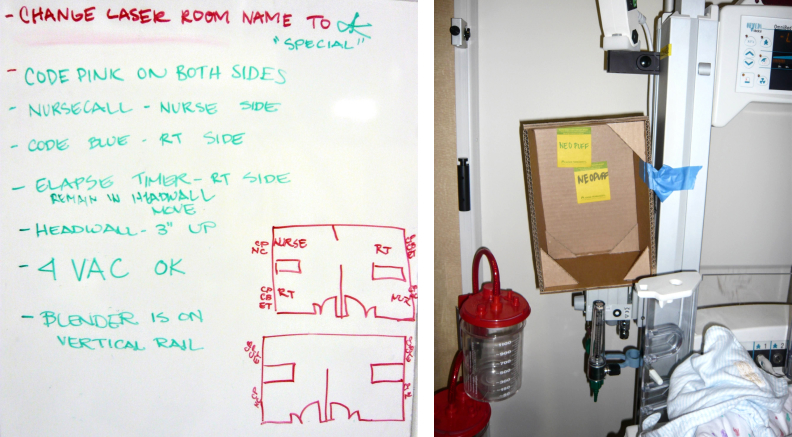 - CHANGE LASER ROOM NAME TO
"SPECIAL"
- CODE PINK ON BOTH SIDES
- NURSECALL - NURSE SIDE
- CODE BLUE - RT SIDE
- ELAPSE TIMER - RT SIDE
REMAIN IN HEADWALL
MOVE
- HEADWALL - 3" UP
- 4 VAC OK
- BLENDER IS ON
VERTICAL RAIL
CP
NC
NURSE
RT
CP
CB
ET
RT
NEO PUFF
NEOPUFF